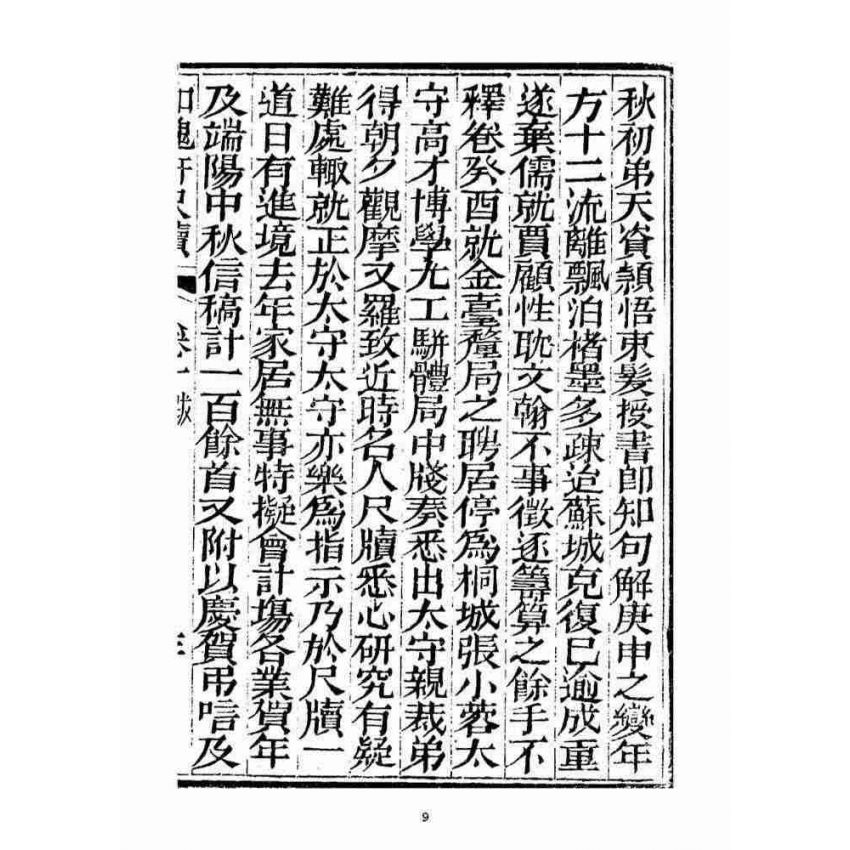 秋初弟天資穎悟束髮授書即知句解庚申之變年
方十二流離飄泊楮墨多疎迨蘇城克復已逾成童
遂棄儒就賈顧性耽文翰不事徵逐籌算之餘手不
釋卷癸酉就金臺釐局之聘居停爲桐城張小蓉太
守高才博學尤工駢體局中牋奏悉出太守親裁弟
得朝夕觀摩又羅致近時名人尺牘悉心研究有疑
難處輙就正於太守太守亦樂爲指示乃於尺牘一
道日有進境去年家居無事特擬會計塲各業賀年
及端陽中秋信稿計一百餘首又附以慶賀弔唁及
9